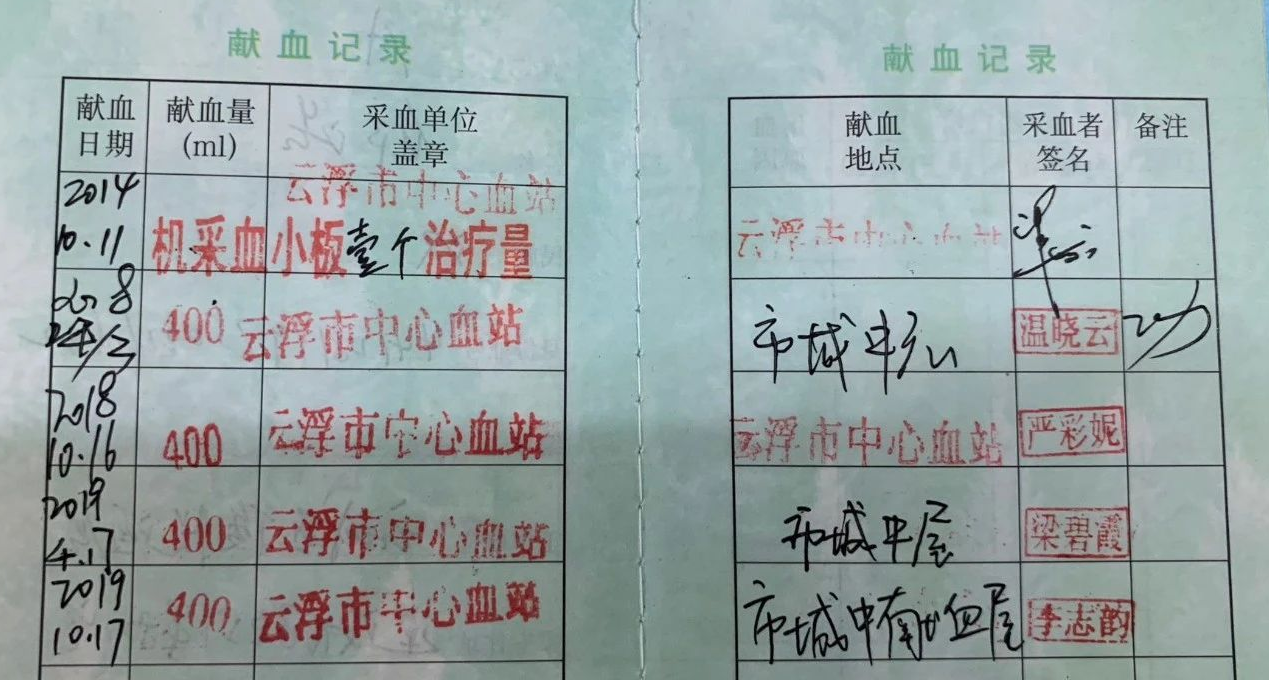 献血记录
献血日期 献血量(ml) 采血单位盖章
2014 10.11 机采血小板壹个治疗量 云浮市中心血站
400 云浮市中心血站
2018 10.16 400 云浮市中心血站
2019 4.17 400 云浮市中心血站
2019 10.17 400 云浮市中心血站
献血记录
献血地点 采血者签名 备注
云浮市中心血站
市城 温晓云
云浮市中心血站 严彩妮
市城中屋 梁碧霞
市城中 血屋 李志韵